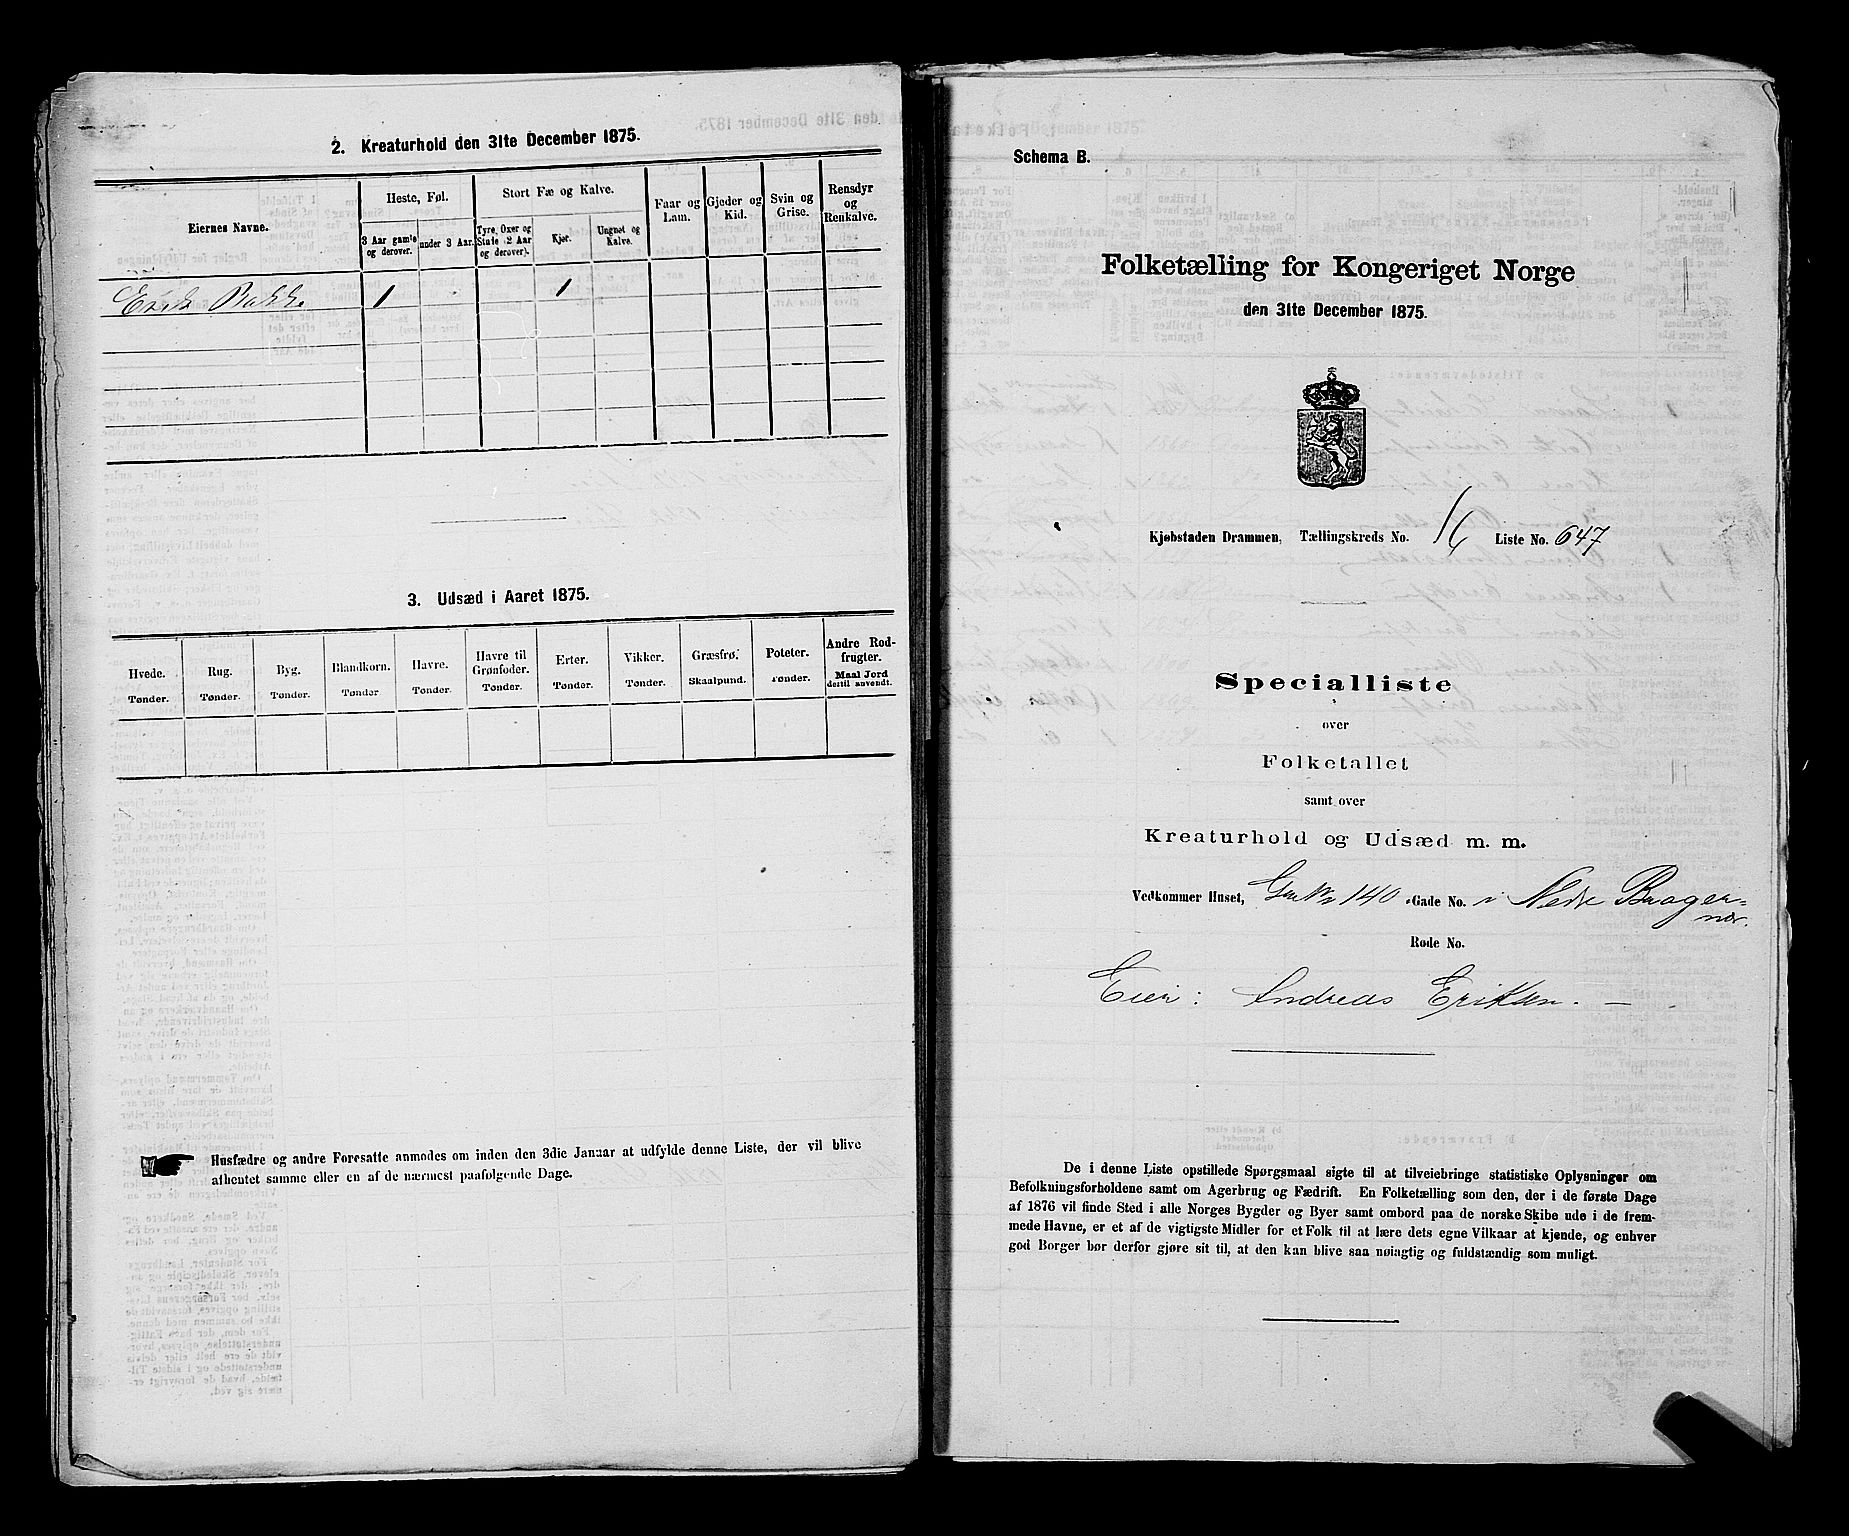 2. Kreaturhold den 31te December 1875.
Eiernes Navne.
Heste, Føl.
Stort Fæ og Kalve.
Faar og Lam.
Gjeder og Kid.
Svin og Grise.
Rensdyr og Renkalve.
3 Aar gamle og derover.
under 3 Aar.
Tyre, Oxer og Stude (2 Aar og derover).
Kjør.
Ungnøt og Kalve.
Erik Bakke 1 1
3. Udsæd i Aaret 1875.
Hvede. Rug. Byg. Blandkorn. Havre. Havre til Grønfoder. Erter. Vikker. Græsfrø. Poteter. Andre Rodfrugter.
Tønder. Tønder. Tønder. Tønder Tønder. Tønder. Tønder. Tønder. Skaalpund. Tønder. Maal Jord dertil anvendt.
Husfædre og andre Foresatte anmodes om inden den 3die Januar at udfylde denne Liste, der vil blive
afhentet samme eller en af de nærmest paafølgende Dage.
Schema B.
Folketælling for Kongeriget Norge
den 31te December 1875.
Kjøbstaden Drammen, Tællingskreds No. 16 Liste No. 647
Specialliste
over
Folketallet
samt over
Kreaturhold og Udsæd m. m.
Vedkommer Huset, 140 Gade No. i Nedre Brager=
næs.
Rode No.
Eier: Andreas Eriksen. —
De i denne Liste opstillede Spørgsmaal sigte til at tilveiebringe statistiske Oplysninger om
Befolkningsforholdene samt om Agerbrug og Fædrift. En Folketælling som den, der i de første Dage
af 1876 vil finde Sted i alle Norges Bygder og Byer samt ombord paa de norske Skibe ude i de frem-
mede Havne, er et af de vigtigste Midler for et Folk til at lære dets egne Vilkaar at kjende, og enhver
god Borger bør derfor gjøre sit til, at den kan blive saa nøiagtig og fuldstændig som muligt.